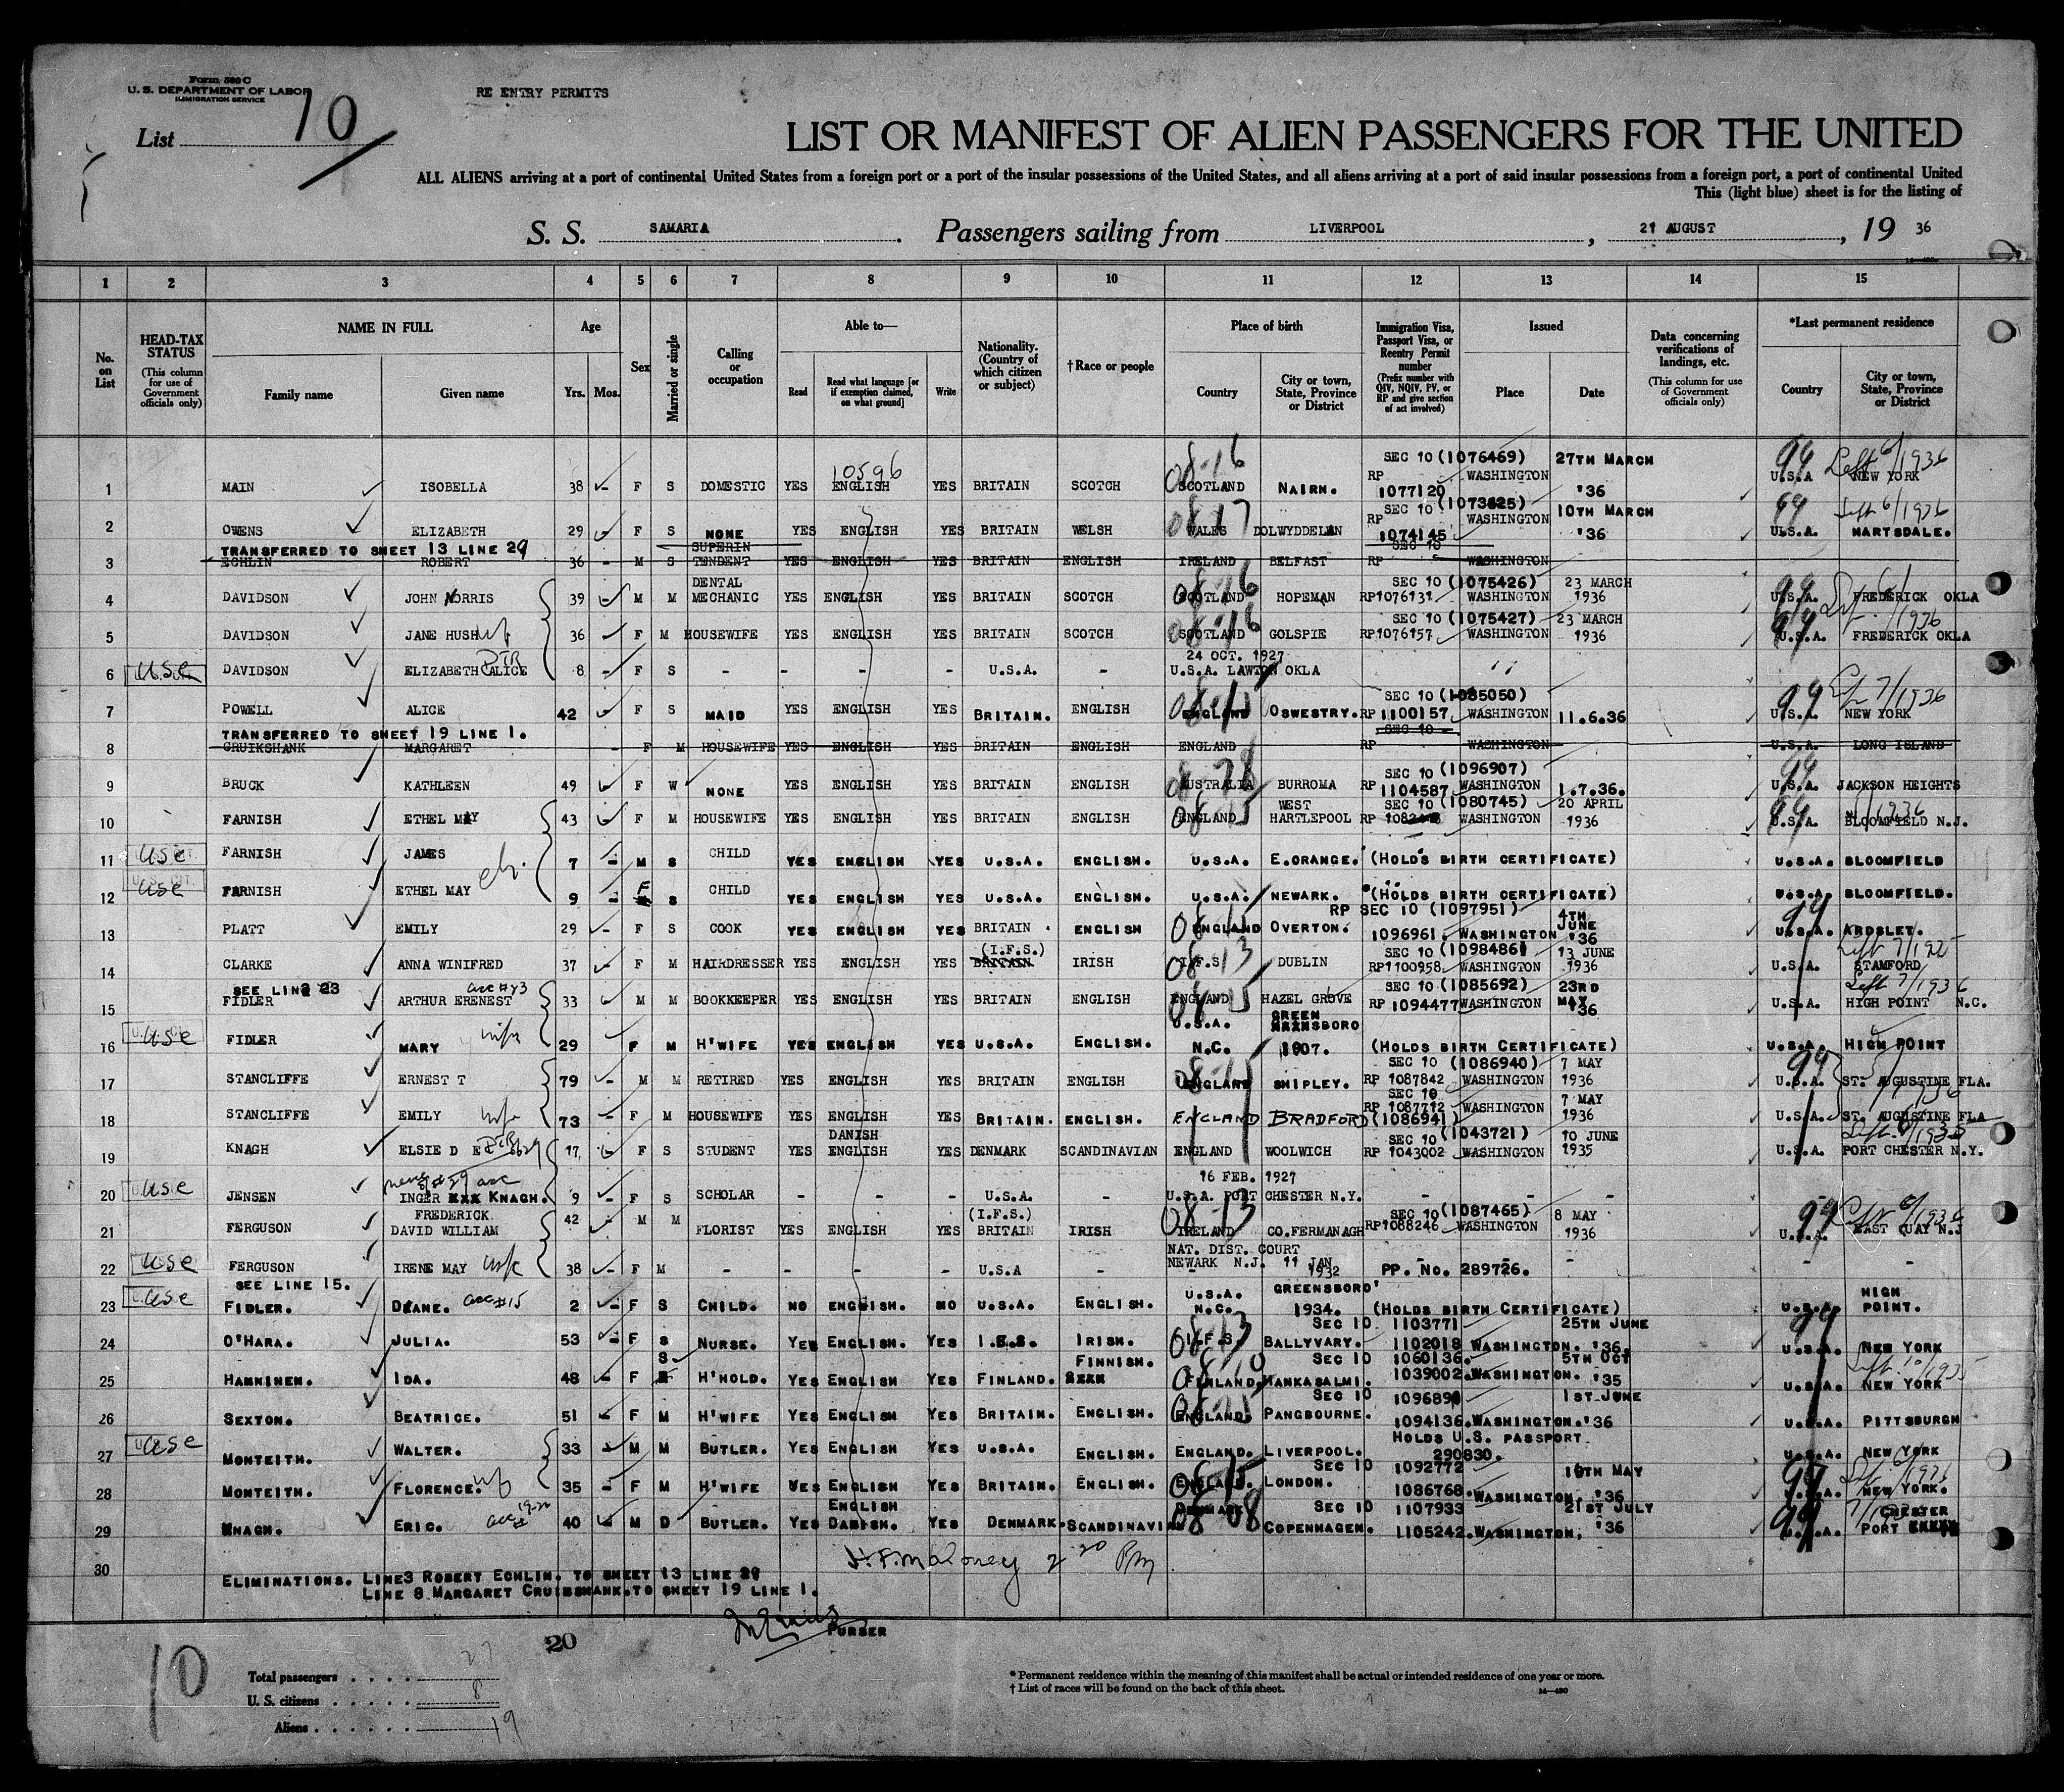 Form 500 C
U. S. DEPARTMENT OF LABOR
IMMIGRATION SERVICE
RE ENTRY PERMITS
List 10
LIST OR MANIFEST OF ALIEN PASSENGERS FOR THE UNITED
ALL ALIENS arriving at a port of continental United States from a foreign port or a port of the insular possessions of the United States, and all aliens arriving at a port of said insular possessions from a foreign port, a port of continental United
This (light blue) sheet is for the listing of
S. S. SAMARIA. Passengers sailing from LIVERPOOL, 21 AUGUST, 19 36
1 2 3 4 5 6 7 8 9 10 11 12 13 14 15
No. on List
HEAD-TAX STATUS (This column for use of Government officials only)
NAME IN FULL Family name Given name
Age Yrs. Mos.
Sex
Married or single
Calling or occupation
Able to— Read Read what language [or if exemption claimed, on what ground] Write
Nationality. (Country of which citizen or subject)
†Race or people
Place of birth Country City or town, State, Province or District
Immigration Visa, Passport Visa, or Reentry Permit number (Prefix number with QIV, NQIV, PV, or RP and give section of act involved)
Issued Place Date
Data concerning verifications of landings, etc. (This column for use of Government officials only)
*Last permanent residence Country City or town, State, Province or District
10596
SEC 10 (1076469) 27TH MARCH Left 6/1936
1 MAIN ISOBELLA 38 F S DOMESTIC YES ENGLISH YES BRITAIN SCOTCH SCOTLAND NAIRN. RP 1077120 WASHINGTON '36 U.S.A NEW YORK
SEC 10 (1073625) 10TH MARCH Left 6/1936
2 OWENS ELIZABETH 29 F S NONE YES ENGLISH YES BRITAIN WELSH WALES DOLWYDDELAN RP 1074145 WASHINGTON '36 U.S.A. HARTSDALE.
TRANSFERRED TO SHEET 13 LINE 29 SUPERIN SEC 10
3 ECHLIN ROBERT 36 - M S TENDENT YES ENGLISH YES BRITAIN ENGLISH IRELAND BELFAST RP WASHINGTON
DENTAL SEC 10 (1075426) 23 MARCH
4 DAVIDSON JOHN NORRIS 39 M M MECHANIC YES ENGLISH YES BRITAIN SCOTCH SCOTLAND HOPEMAN RP1076131 WASHINGTON 1936 U.S.A. FREDERICK OKLA
SEC 10 (1075427) 23 MARCH
5 DAVIDSON JANE HUSH wf 36 F M HOUSEWIFE YES ENGLISH YES BRITAIN SCOTCH SCOTLAND GOLSPIE RP1076157 WASHINGTON 1936 U.S.A. FREDERICK OKLA
24 OCT. 1927
6 USC DAVIDSON ELIZABETH ALICE DTR 8 - F S - - - - U.S.A. - U.S.A. LAWTON OKLA
SEC 10 (1085050) Left 7/1936
7 POWELL ALICE 42 F S MAID YES ENGLISH YES BRITAIN. ENGLISH ENGLAND OSWESTRY. RP 1100157 WASHINGTON 11.6.36 U.S.A. NEW YORK
TRANSFERRED TO SHEET 19 LINE 1. SEC 10
8 CRUIKSHANK MARGARET - F M HOUSEWIFE YES ENGLISH YES BRITAIN ENGLISH ENGLAND RP WASHINGTON U.S.A. LONG ISLAND
SEC 10 (1096907)
9 BRUCK KATHLEEN 49 F W NONE YES ENGLISH YES BRITAIN ENGLISH AUSTRALIA BURROMA RP 1104587 WASHINGTON 1.7.36. U.S.A. JACKSON HEIGHTS
WEST SEC 10 (1080745) 20 APRIL
10 FARNISH ETHEL MAY 43 F M HOUSEWIFE YES ENGLISH YES BRITAIN ENGLISH ENGLAND HARTLEPOOL RP WASHINGTON 1936 U.S.A. BLOOMFIELD N.J.
11 USC FARNISH JAMES 7 - M S CHILD YES ENGLISH YES U.S.A. ENGLISH. U.S.A. E.ORANGE. (HOLDS BIRTH CERTIFICATE) U.S.A. BLOOMFIELD
12 USC FARNISH ETHEL MAY 9 - F S CHILD YES ENGLISH YES U.S.A. ENGLISH. U.S.A. NEWARK. (HOLDS BIRTH CERTIFICATE) U.S.A. BLOOMFIELD.
RP SEC 10 (1097951) 4TH JUNE
13 PLATT EMILY 29 - F S COOK YES ENGLISH YES BRITAIN ENGLISH ENGLAND OVERTON. 1096961. WASHINGTON '36 U.S.A. ARDSLEY.
(I.F.S.) SEC 10 (1098486) 13 JUNE
14 CLARKE ANNA WINIFRED 37 F M HAIRDRESSER YES ENGLISH YES BRITAIN IRISH I.F.S DUBLIN RP1100958 WASHINGTON 1936 U.S.A. STAMFORD
SEE LINE 23 acc #23 SEC 10 (1085692) 23RD MAY Left 7/1936
15 FIDLER ARTHUR ERENEST 33 M M BOOKKEEPER YES ENGLISH YES BRITAIN ENGLISH ENGLAND HAZEL GROVE RP 1094477 WASHINGTON '36 U.S.A. HIGH POINT N.C.
U.S.A. GREEN
16 USC FIDLER MARY wife 29 F M H'WIFE YES ENGLISH YES U.S.A. ENGLISH. N.C. 1907. (HOLDS BIRTH CERTIFICATE) U.S.A. HIGH POINT
SEC 10 (1086940) 7 MAY
17 STANCLIFFE ERNEST T 79 M M RETIRED YES ENGLISH YES BRITAIN ENGLISH ENGLAND SHIPLEY. RP 1087842 WASHINGTON 1936 U.S.A. ST. AUGUSTINE FLA.
SEC 10 7 MAY
18 STANCLIFFE EMILY wife 73 F M HOUSEWIFE YES ENGLISH YES BRITAIN. ENGLISH. ENGLAND BRADFORD RP 1087712 (1086941) WASHINGTON 1936 U.S.A. ST. AUGUSTINE FLA
DANISH SEC 10 (1043721) 10 JUNE
19 KNAGH ELSIE D E DTR 17 F S STUDENT YES ENGLISH YES DENMARK SCANDINAVIAN ENGLAND WOOLWICH RP 1043002 WASHINGTON 1935 U.S.A. PORT CHESTER N.Y.
16 FEB. 1927
20 USC JENSEN INGER KNAGH. 9 - F S SCHOLAR - - - U.S.A. - U.S.A. PORT CHESTER N.Y.
FREDERICK (I.F.S.) SEC 10 (1087465) 8 MAY
21 FERGUSON DAVID WILLIAM 42 M M FLORIST YES ENGLISH YES BRITAIN IRISH IRELAND CO.FERMANAGH RP1088246 WASHINGTON 1936 U.S.A. EAST QUAY N.J
NAT. DIST. COURT
22 USC FERGUSON IRENE MAY wife 38 - F M - - - - U.S.A - NEWARK N.J. 11 JAN 1932 PP. NO. 289726. -
SEE LINE 15. U.S.A. GREENSBORO HIGH
23 USC FIDLER. DIANE. acc #15 2 - F S CHILD. NO ENGLISH. NO U.S.A. ENGLISH. N.C. 1934. (HOLDS BIRTH CERTIFICATE) U.S.A. POINT.
SEC 10 1103771 25TH JUNE
24 O'HARA. JULIA. 53 - F S NURSE. YES ENGLISH. YES I.F.S. IRISH. I.F.S. BALLYVARY. 1102018 WASHINGTON. '36. U.S.A. NEW YORK
S. FINNISH. SEC 10 1060136. 5TH OCT Left 10/1935
25 HANNINEN. IDA. 48 - F H'HOLD. YES ENGLISH YES FINLAND. FINLAND. HANKASALMI. 1039002. WASHINGTON. '35 U.S.A. NEW YORK
SEC 10 1ST JUNE
26 SEXTON. BEATRICE. 51 - F M H'WIFE YES ENGLISH YES BRITAIN. ENGLISH. ENGLAND. PANGBOURNE. 1094136. WASHINGTON. '36 U.S.A. PITTSBURGH
HOLDS U.S. PASSPORT
27 USC MONTEITH. WALTER. 33 - M M BUTLER. YES ENGLISH YES U.S.A. ENGLISH. ENGLAND. LIVERPOOL. 290830. U.S.A. NEW YORK
SEC 10 1092772 MAY
28 MONTEITH. FLORENCE. wf 35 - F M H'WIFE YES ENGLISH YES BRITAIN. ENGLISH. ENGLAND. LONDON. 1086768. WASHINGTON '36 U.S.A. NEW YORK.
ENGLISH DENMARK SEC 10 1107933 21ST JULY CHESTER
29 KNAGH. ERIC. acc # 19-20 40 - M D BUTLER. YES DANISH. YES DENMARK. SCANDINAVIAN COPENHAGEN. 1105242. WASHINGTON, '36 U.S.A. PORT
30 H. F. Maloney 2 20 PM
ELIMINATIONS. LINE3 ROBERT ECHLIN. TO SHEET 13 LINE 29
LINE 8 MARGARET CRUIKSHANK. TO SHEET 19 LINE 1.
PURSER
20
10
Total passengers . . . . 27
U. S. citizens . . . . . 8
Aliens . . . . . . 19
* Permanent residence within the meaning of this manifest shall be actual or intended residence of one year or more.
† List of races will be found on the back of this sheet.